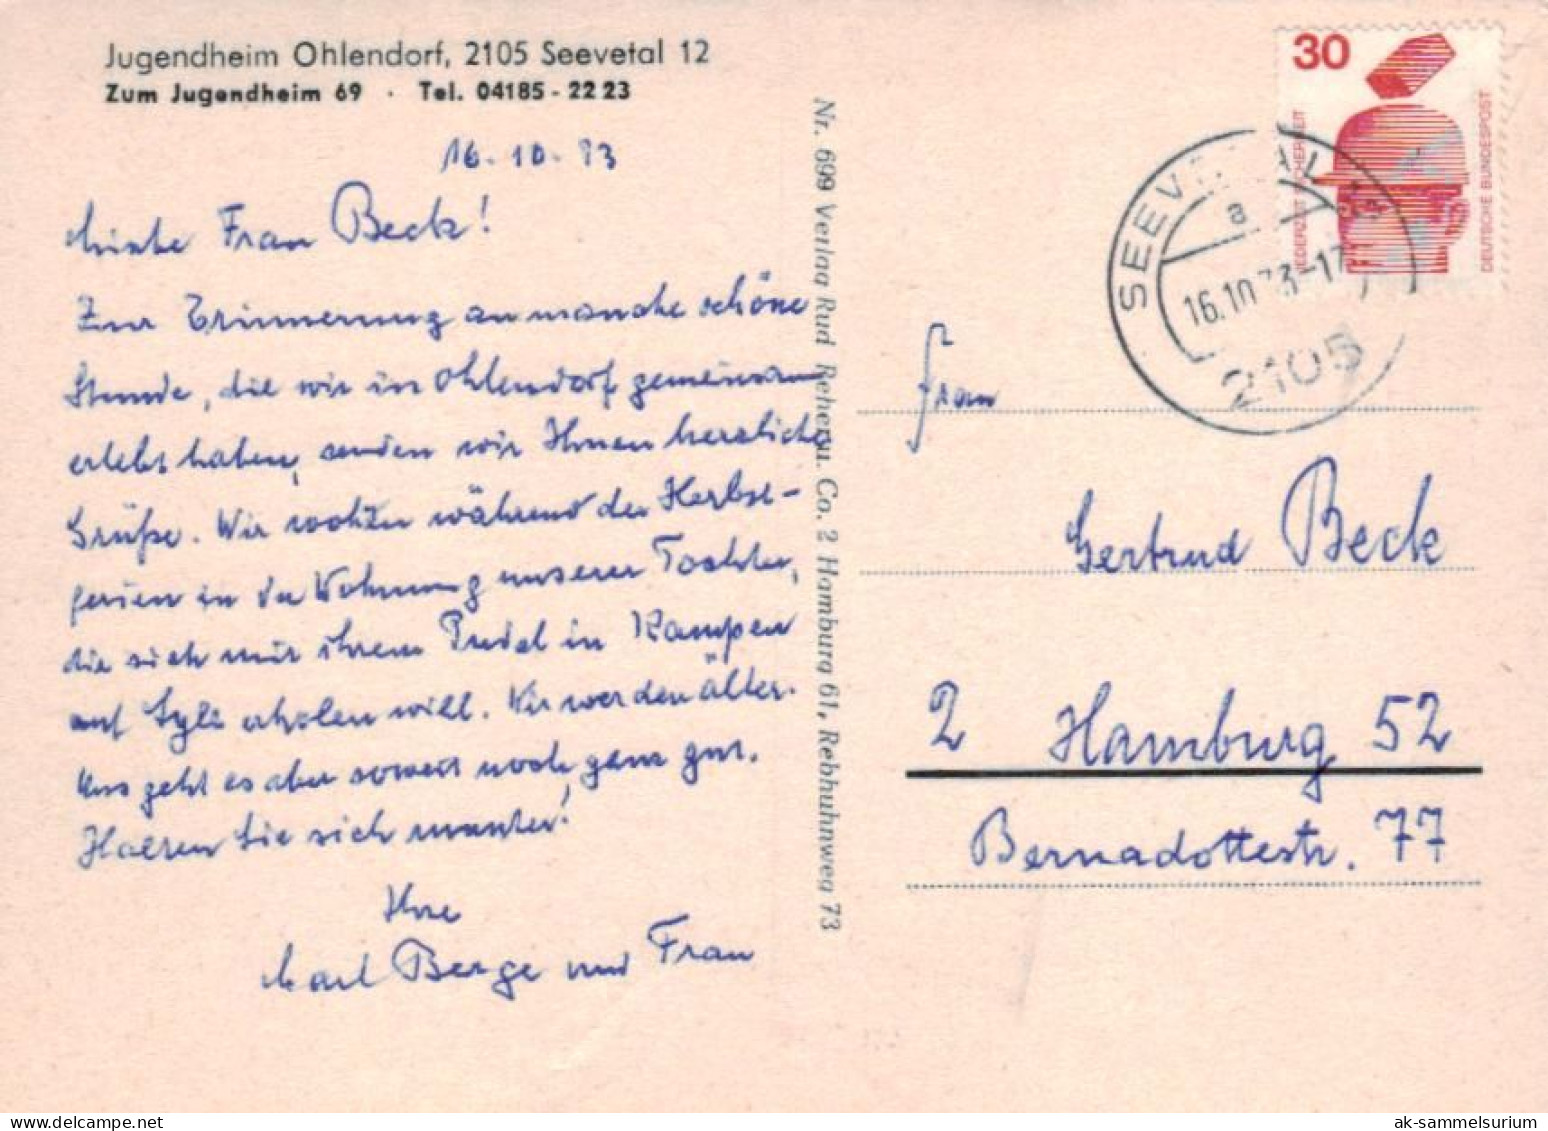 Jugendheim Ohlendorf, 2105 Seevetal 12
Zum Jugendheim 69 · Tel. 04185 - 22 23
16.10.73
Liebe Frau Beck!
Zur Erinnerung an manche schöne
Stunde, die wir in Ohlendorf gemeinsam
erlebt haben, senden wir Ihnen herzliche
Grüße. Wir wohnen während der Herbst-
ferien in der Wohnung unserer Tochter,
die sich mit ihrem Pudel in Kampen
auf Sylt erholen will. Wir werden älter.
Uns geht es aber soweit noch ganz gut.
Halten Sie sich munter!
Ihre
Carl Berge und Frau
Nr. 699 Verlag Rud Reher u. Co. 2 Hamburg 61, Rebhuhnweg 73
30
NIEDERZEIT SICHERHEIT
DEUTSCHE BUNDESPOST
SEEVETAL
a
16.10.73-17
2105
Frau
Gertrud Beck
2 Hamburg 52
Bernadottestr. 77
ak-sammelsurium